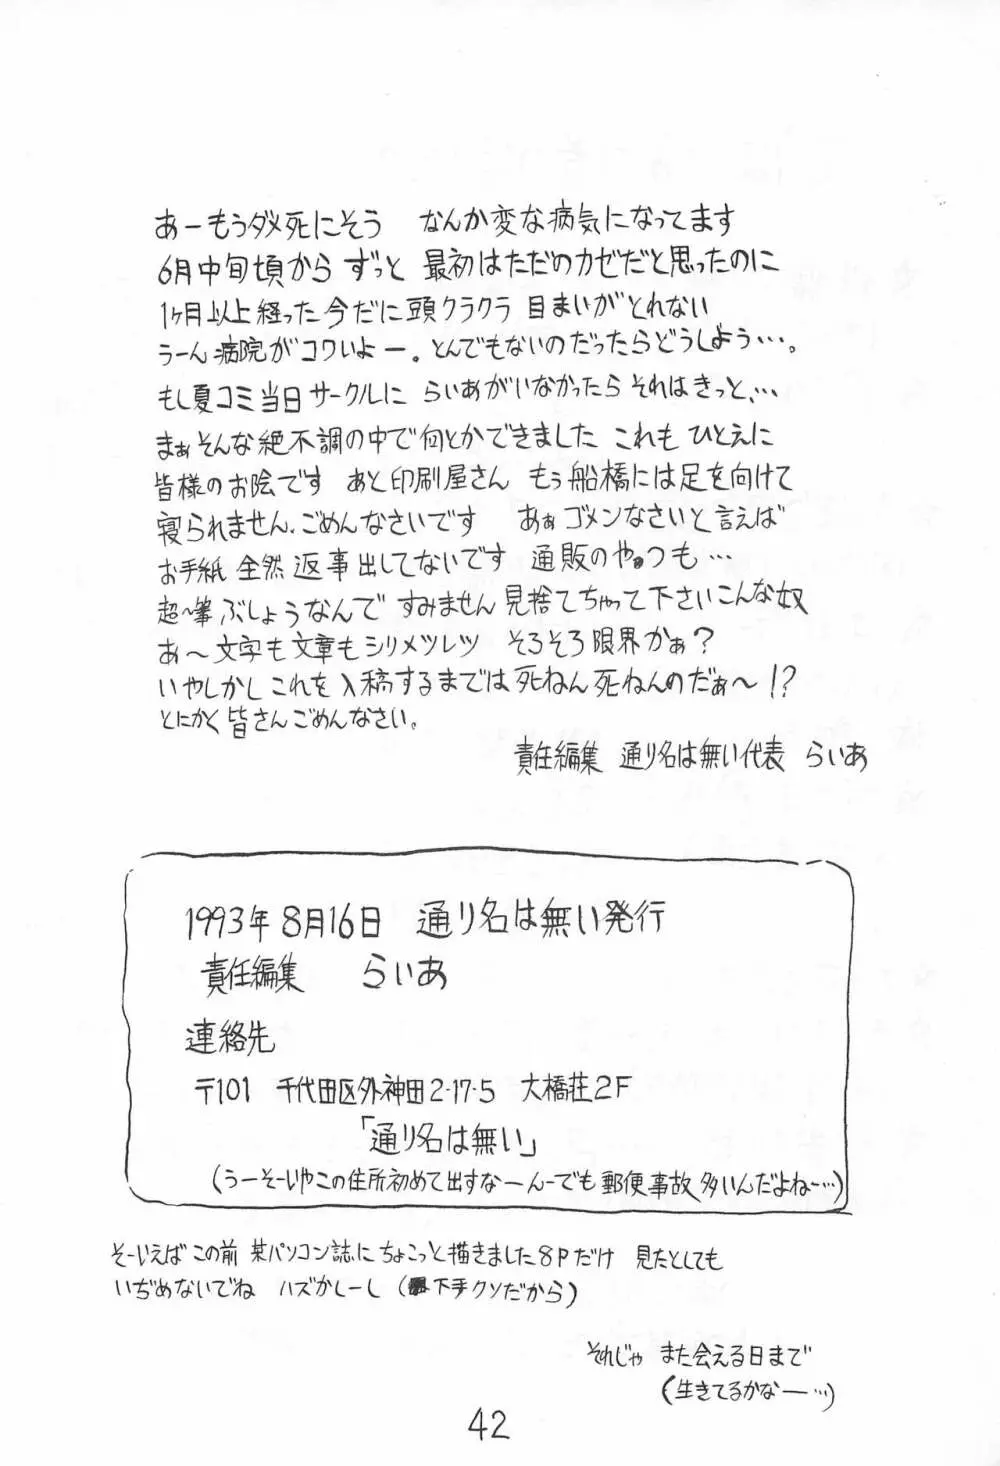 あーもうダメ死にそう なんか変な病気になってます
6月中旬頃から ずっと 最初はただのカゼだと思ったのに
1ヶ月以上経った今だに頭クラクラ 目まいがとれない
うーん病院がコワいよー。とんでもないのだったらどうしよう…。
もし夏コミ当日サークルに らいあがいなかったら それはきっと、…
まぁそんな絶不調の中で何とかできました これも ひとえに
皆様のお陰です あと印刷屋さん もう船橋には足を向けて
寝られません、ごめんなさいです あぁ ゴメンなさいと言えば
お手紙 全然 返事出してないです 通販のやつも…
超〜筆ぶしょうなんで すみません 見捨てちゃって下さいこんな奴
あ〜文字も文章もシリメツレツ そろそろ限界かぁ?
いやしかし これを入稿するまでは 死ねん死ねんのだぁ〜!?
とにかく皆さんごめんなさい。
責任編集 通り名は無い代表 らいあ
1993年8月16日 通り名は無い発行
責任編集 らいあ
連絡先
〒101 千代田区外神田2-17-5 大橋荘2F
「通り名は無い」
(うーそーいやこの住所初めて出すなーんーでも郵便事故多いんだよねー…)
そーいえば この前 某パソコン誌に ちょこっと描きました8Pだけ 見たとしても
いぢめないでね ハズかしーし (下手クソだから)
それじゃ また会える日まで
(生きてるかなー…)
42